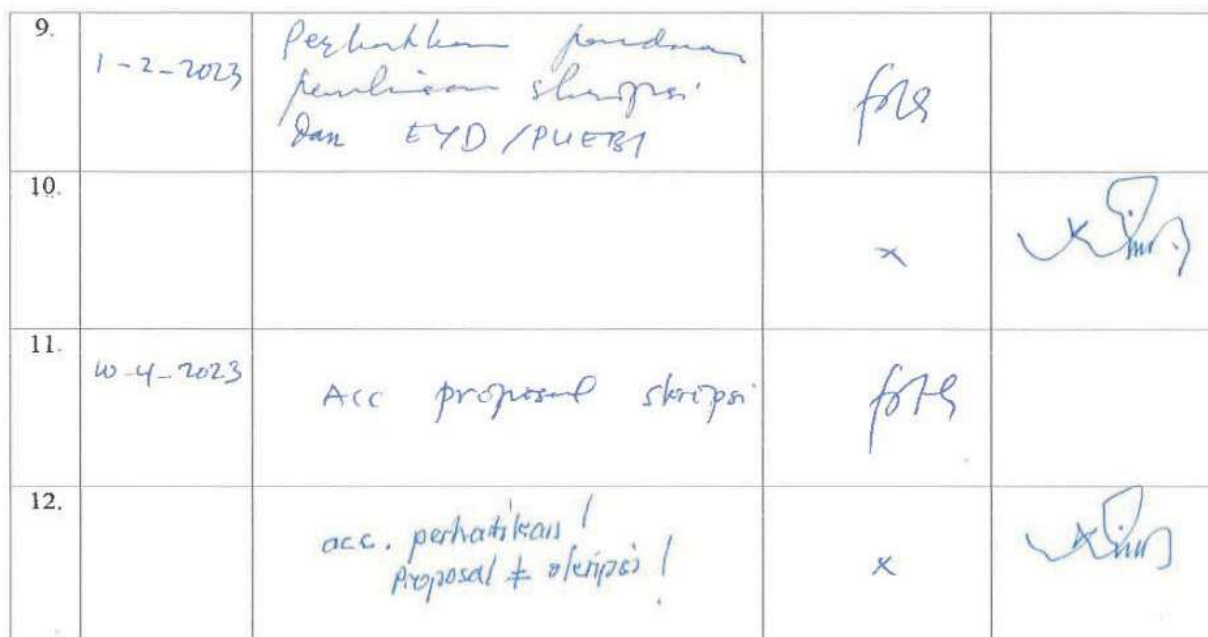 9.
1-2-2023
Perhatikan panduan
penulisan skripsi
dan EYD/PUEBI
10.
x
11.
10-4-2023
Acc proposal skripsi
12.
acc. perhatikan!
Proposal ≠ skripsi!
x